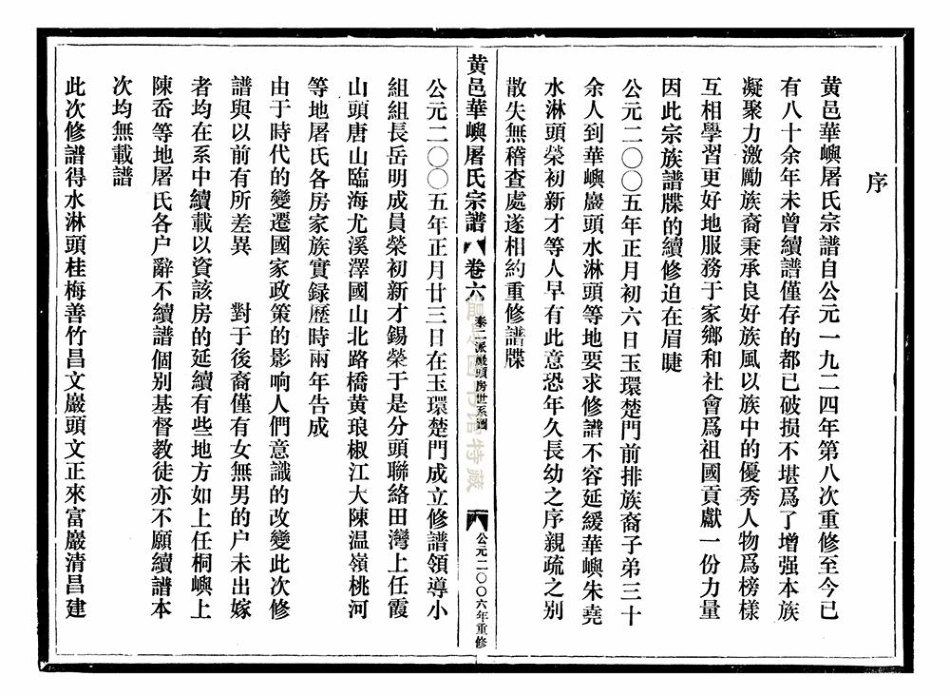 序
黄邑華嶼屠氏宗譜自公元一九二四年第八次重修至今已
有八十余年未曾續譜僅存的都已破损不堪爲了增强本族
凝聚力激勵族裔秉承良好族風以族中的優秀人物爲榜樣
互相學習更好地服務于家鄉和社會爲祖國貢獻一份力量
因此宗族譜牒的續修迫在眉睫
公元二〇〇五年正月初六日玉環楚門前排族裔子弟三十
余人到華嶼巖頭水淋頭等地要求修譜不容延緩華嶼朱堯
水淋頭榮初新才等人早有此意恐年久長幼之序親疏之别
散失無稽查處遂相約重修譜牒
黄邑華嶼屠氏宗譜 卷六 泰二派巖頭房世系圖 公元二〇〇六年重修
公元二〇〇五年正月廿三日在玉環楚門成立修譜領導小
組組長岳明成員榮初新才錫榮于是分頭聯絡田灣上任霞
山頭唐山臨海尤溪澤國山北路橋黄琅椒江大陳温嶺桃河
等地屠氏各房家族實録歷時兩年告成
由于時代的變遷國家政策的影响人們意識的改變此次修
譜與以前有所差異 對于後裔僅有女無男的户未出嫁
者均在系中續載以資該房的延續有些地方如上任桐嶼上
陳岙等地屠氏各户辭不續譜個别基督教徒亦不願續譜本
次均無載譜
此次修譜得水淋頭桂梅善竹昌文巖頭文正來富巖清昌建